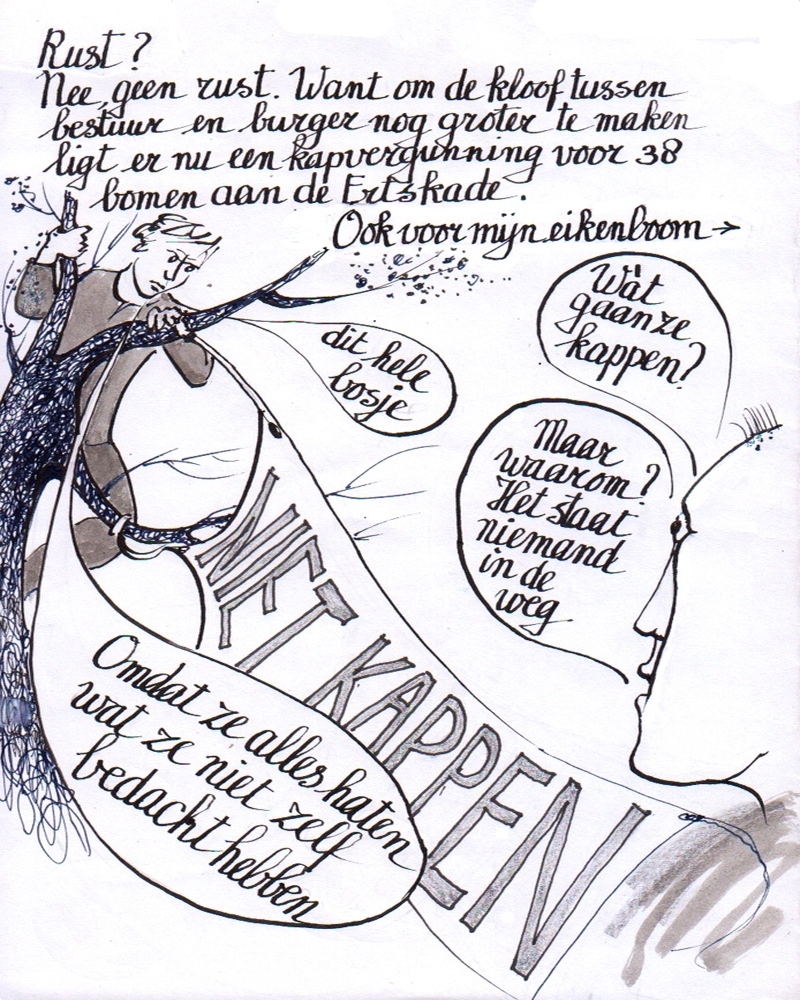 Rust?
Nee, geen rust. Want om de kloof tussen
bestuur en burger nog groter te maken
ligt er nu een kapvergunning voor 38
bomen aan de Ertskade.
Ook voor mijn eikenboom →
Wàt
gaan ze
kappen?
dit hele
bosje
Maar
waarom?
Het staat
niemand
in de
weg
Omdat ze alles haten
wat ze niet zelf
bedacht hebben
NIET KAPPEN